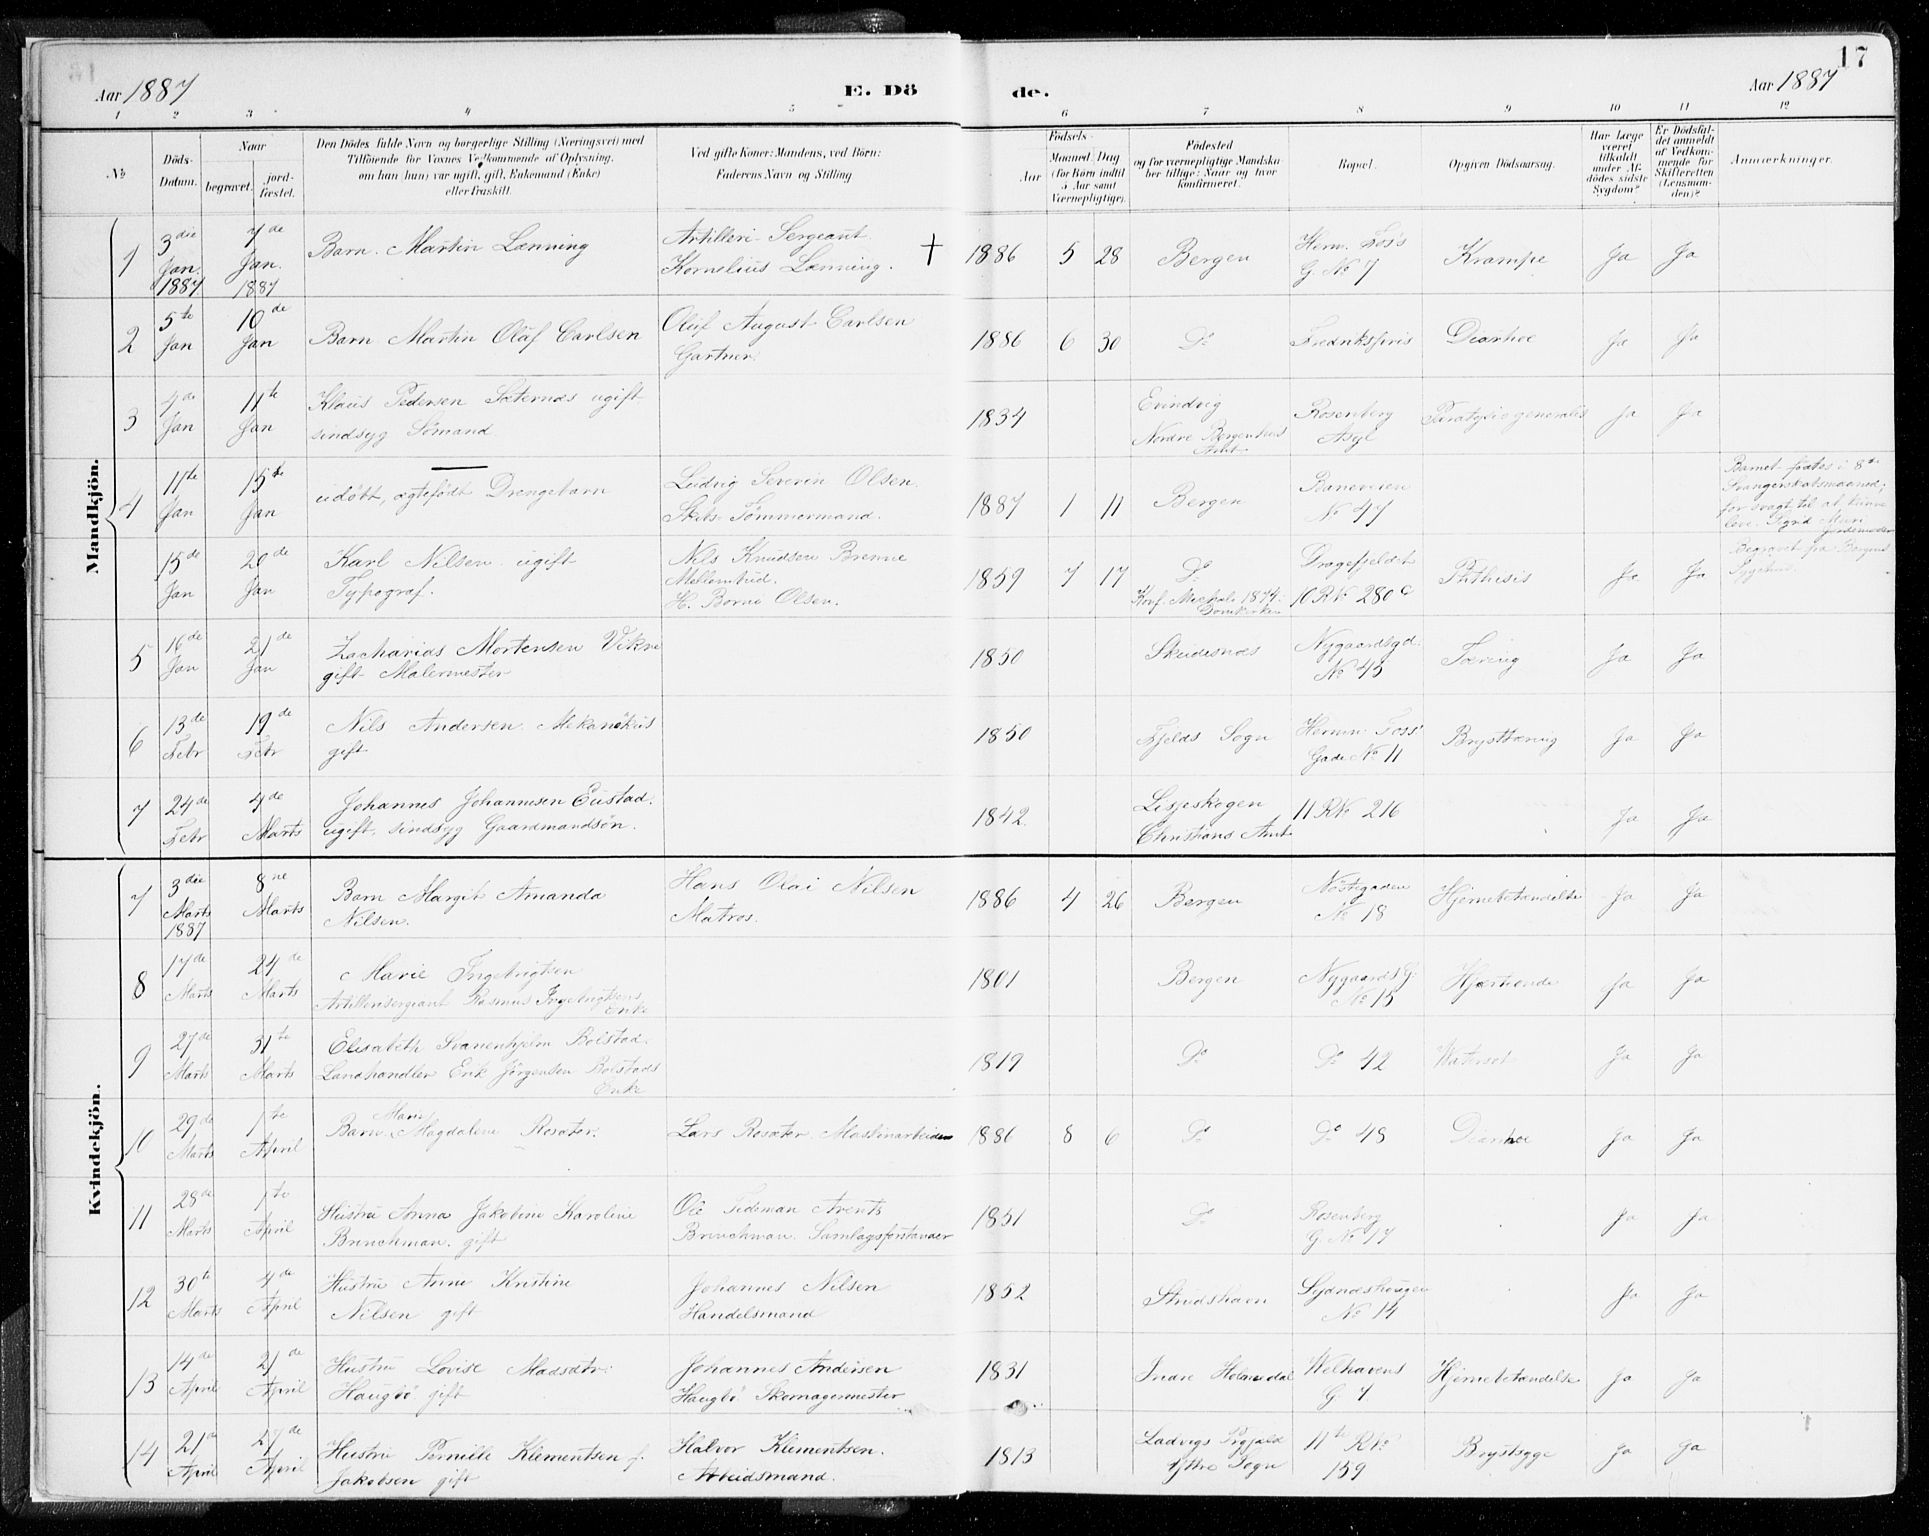 17
Aar 1887
E. Dö
de.
Aar 1887
1 2 3 4 5 6 7 8 9 10 11 12
№
Döds-Datum.
Naar
begravet.
jord-fæstet.
Den Dödes fulde Navn og borgerlige Stilling (Næringsvei) med
Tilföiende for Voxnes Vedkommende af Oplysning,
om han (hun) var ugift, gift, Enkemand (Enke)
eller fraskilt.
Ved gifte Koner: Mandens, ved Börn:
Faderens Navn og Stilling
Födsels-
Aar
Maaned Dag
(for Börn indtil
5 Aar samt
Værnepligtige).
Födested
og for værnepligtige Mandska-
ber tillige: Naar og hvor
konfirmeret.
Bopæl.
Opgiven Dödsaarsag.
Har Læge
været
tilkaldt
under Af-
dödes sidste
Sygdom?
Er Dödsfal-
det anmeldt
af Vedkom-
mende for
Skifteretten
(Lensman-
den)?
Anmærkninger.
Mandkjön.
1 3die Jan. 1887 7de Jan. 1887 Barn. Martin Lænning Artilleri Sergeant
Kornelius Lænning. † 1886 5 28 Bergen Herm. Foss G. No 7 Krampe Ja Ja
2 5te Jan 10de Jan Barn Martin Olaf Carlsen Oluf August Carlsen
Gartner. 1886 6 30 Do Diarhoe Ja Ja
3 4de Jan 11te Jan Klaus Pedersen Sæternæs ugift
sindsyg Sømand 1834 Evindvig
Nordre Bergenhus Amt Rosenberg Asyl Ja Ja
4 11te Jan 15de Jan udöbt, ægtefödt Drengebarn Ludvig Severin Olsen.
Skibs-Tömmermand. 1887 1 11 Bergen Baneveien No 47 Barnet fødtes i 8de
Svangerskabsmaaned;
for svagt til at kunne
leve.
15de Jan 20de Jan Karl Nilsen ugift
Typograf. Nils Knudsen Brenne
H. Borni Olsen. 1859 7 17 Do
Konf. Michali 1874
Domkirken Dragefjeldet
10 R No 280 c Phthisis Ja Ja Begravet fra Bergens
Sygehus.
5 16de Jan 21de Jan Zacharias Mortensen Vikne
gift Malermester 1850 Skudesnæs Nygaardsgd. No 45 Tæring Ja Ja
6 13de Febr 19de Febr Nils Andersen Mekanikus
gift 1850 Fjelds Sogn Herm. Foss' Gade No 11 Brysttæring Ja Ja
7 24de Febr 4de Marts Johannes Johannesen Enstad.
ugift, sindsyg Gaardmandsön. 1842. Lesjeskogen
Christians Amt 11 R No 216 Ja Ja
Kvindekjön.
7 3die Marts 1887 8ne Marts Barn Margit Amanda
Nilsen. Hans Olai Nilsen
Matros. 1886 4 26 Bergen Nöstegaden No 18 Hjernebetændelse Ja Ja
8 17de Marts 24de Marts Marie Ingebrigtsen
Artillerisergeant Rasmus Ingebrigtsens
Enke 1801 Bergen Nygaards G. No 15 Hjærtlende Ja Ja
9 27de Marts 31te Marts Elisabeth Svanenhjelm Bolstad.
Landhandler Erik Jörgensen Bolstads
Enke 1819 Do Do 42 Vattersot Ja Ja
10 29de Marts 1te April Barn Marie Magdalene Rosæter. Lars Rosæter Maskinarbeider 1886 8 6 Do Do 48 Diarhoe Ja Ja
11 28de Marts 1te April Hustru Anna Jakobine Karoline
Brinchman. gift Ole Tideman Arents
Brinchman. Samlagsforstander 1851 Do Rosenberg G. No 17 Ja Ja
12 30te Marts 4de April Hustru Anne Kristine
Nilsen gift Johannes Nilsen
Handelsmand 1852 Sydnæshougen No 14 Ja Ja
13 14de April 21de April Hustru Lovise Madsdtr.
Hauglö gift Johannes Andersen
Hauglö Skomagermester 1831 Indre Holmedal Welhavens G. 7 Hjernebetændelse Ja Ja
14 21de April 27de April Hustru Pernille Klementsen f.
Jakobsen gift Halvor Klementsen.
Arbeidsmand. 1813 Ladvigs Prgjeld
Yttre Sogn 11te R No 159 Brystsyge Ja Ja